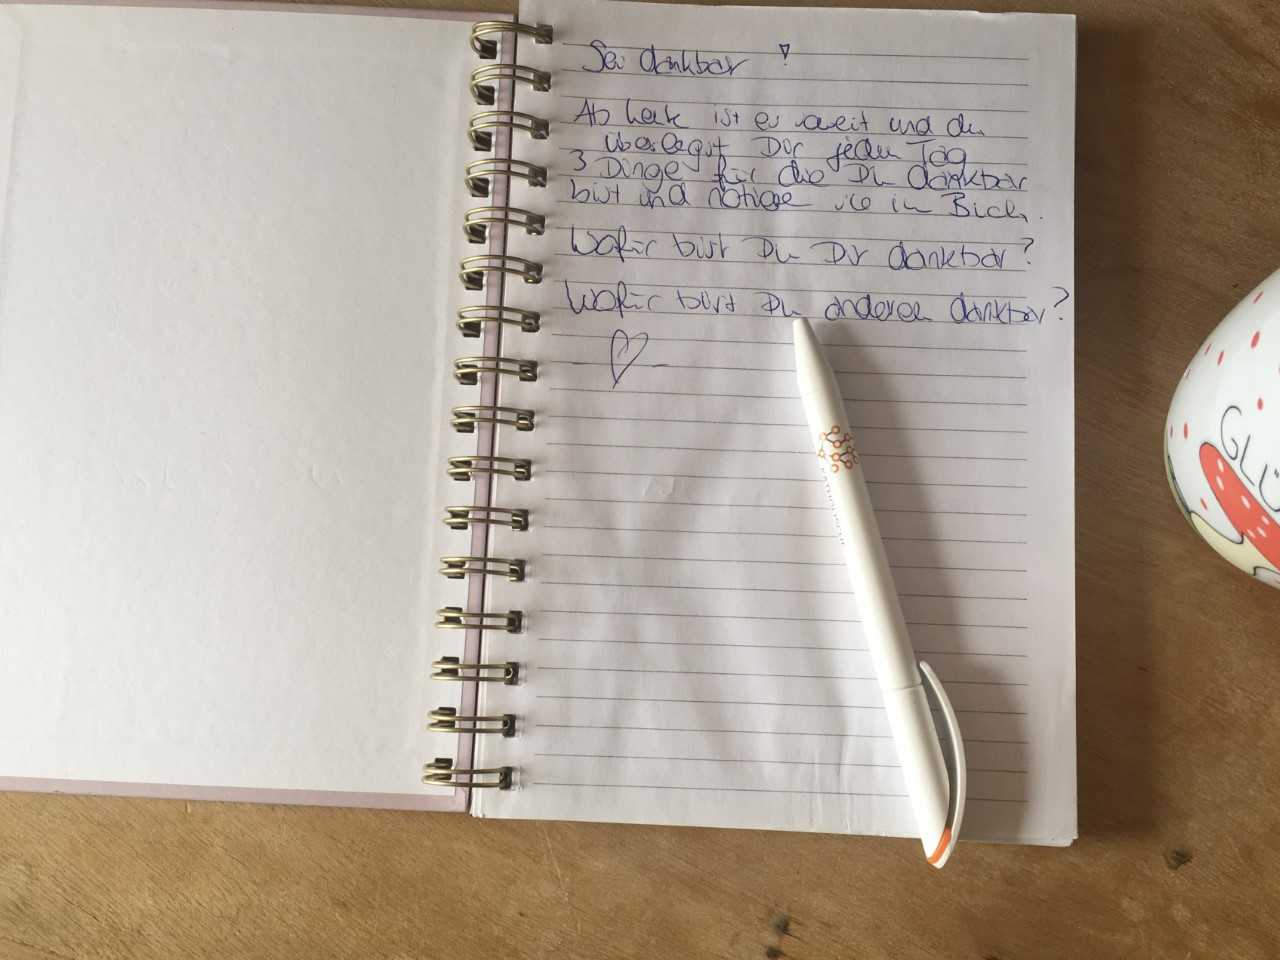 Sei dankbar!
Ab heute ist es soweit und du
überlegst Dir jeden Tag
3 Dinge für die Du dankbar
bist und notiere sie im Buch.
Wofür bist Du Dir dankbar?
Wofür bist Du anderen dankbar?
GLÜ